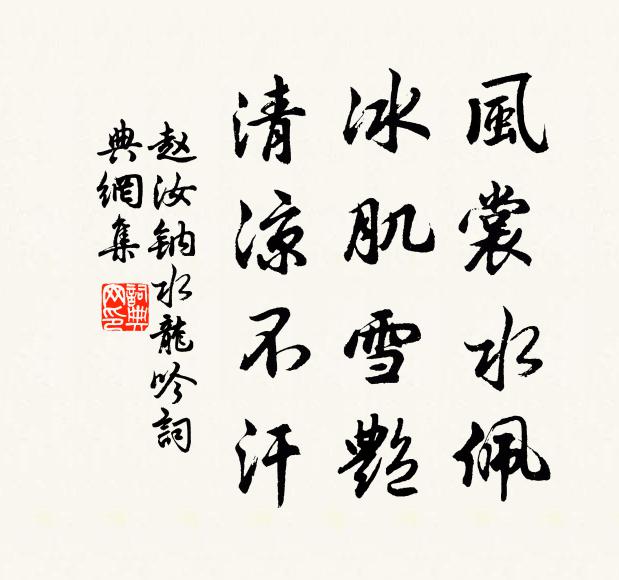 風裳水佩
冰肌雪艷
清凉不汗
赵汝钠水龍吟詞
典網集
詞典網印